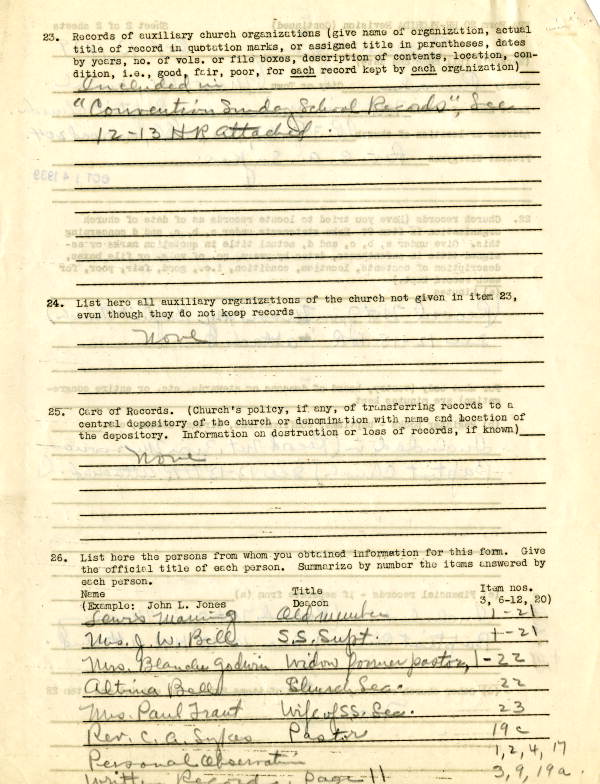 23. Records of auxiliary church organizations (give name of organization, actual
title of record in quotation marks, or assigned title in parentheses, dates
by years, no. of vols. or file boxes, description of contents, location, con-
dition, i.e., good, fair, poor, for each record kept by each organization)
Included in
"Convention Sunday School Records", See
12-13 HR attached.
OCT 14 1939
24. List here all auxiliary organizations of the church not given in item 23,
even though they do not keep records
None
25. Care of Records. (Church's policy, if any, of transferring records to a
central depository of the church or denomination with name and location of
the depository. Information on destruction or loss of records, if known)
None
26. List here the persons from whom you obtained information for this form. Give
the official title of each person. Summarize by number the items answered by
each person.
Name Title Item nos.
(Example: John L. Jones Deacon 3, 6-12, 20)
Lewis Manning Old member 1-21
Mrs. J. W. Bell S.S. Supt. 1-21
Mrs. Blanche Godwin Widow former pastor, 1-22
Altina Bell Church Sec. 22
Mrs. Paul Wife of SS. Sec. 23
Rev. C. A. Pastor 19c
Personal Observation 1, 2, 4, 17
Written Record, page 11 3, 9, 19a.